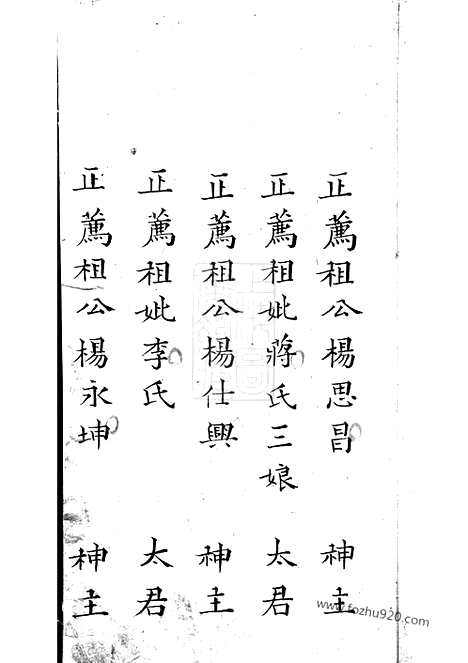 正薦祖公楊思昌 神主
正薦祖妣蔣氏三娘 太君
正薦祖公楊仕興 神主
正薦祖妣李氏 太君
正薦祖公楊永坤 神主
www.fozhu920.com